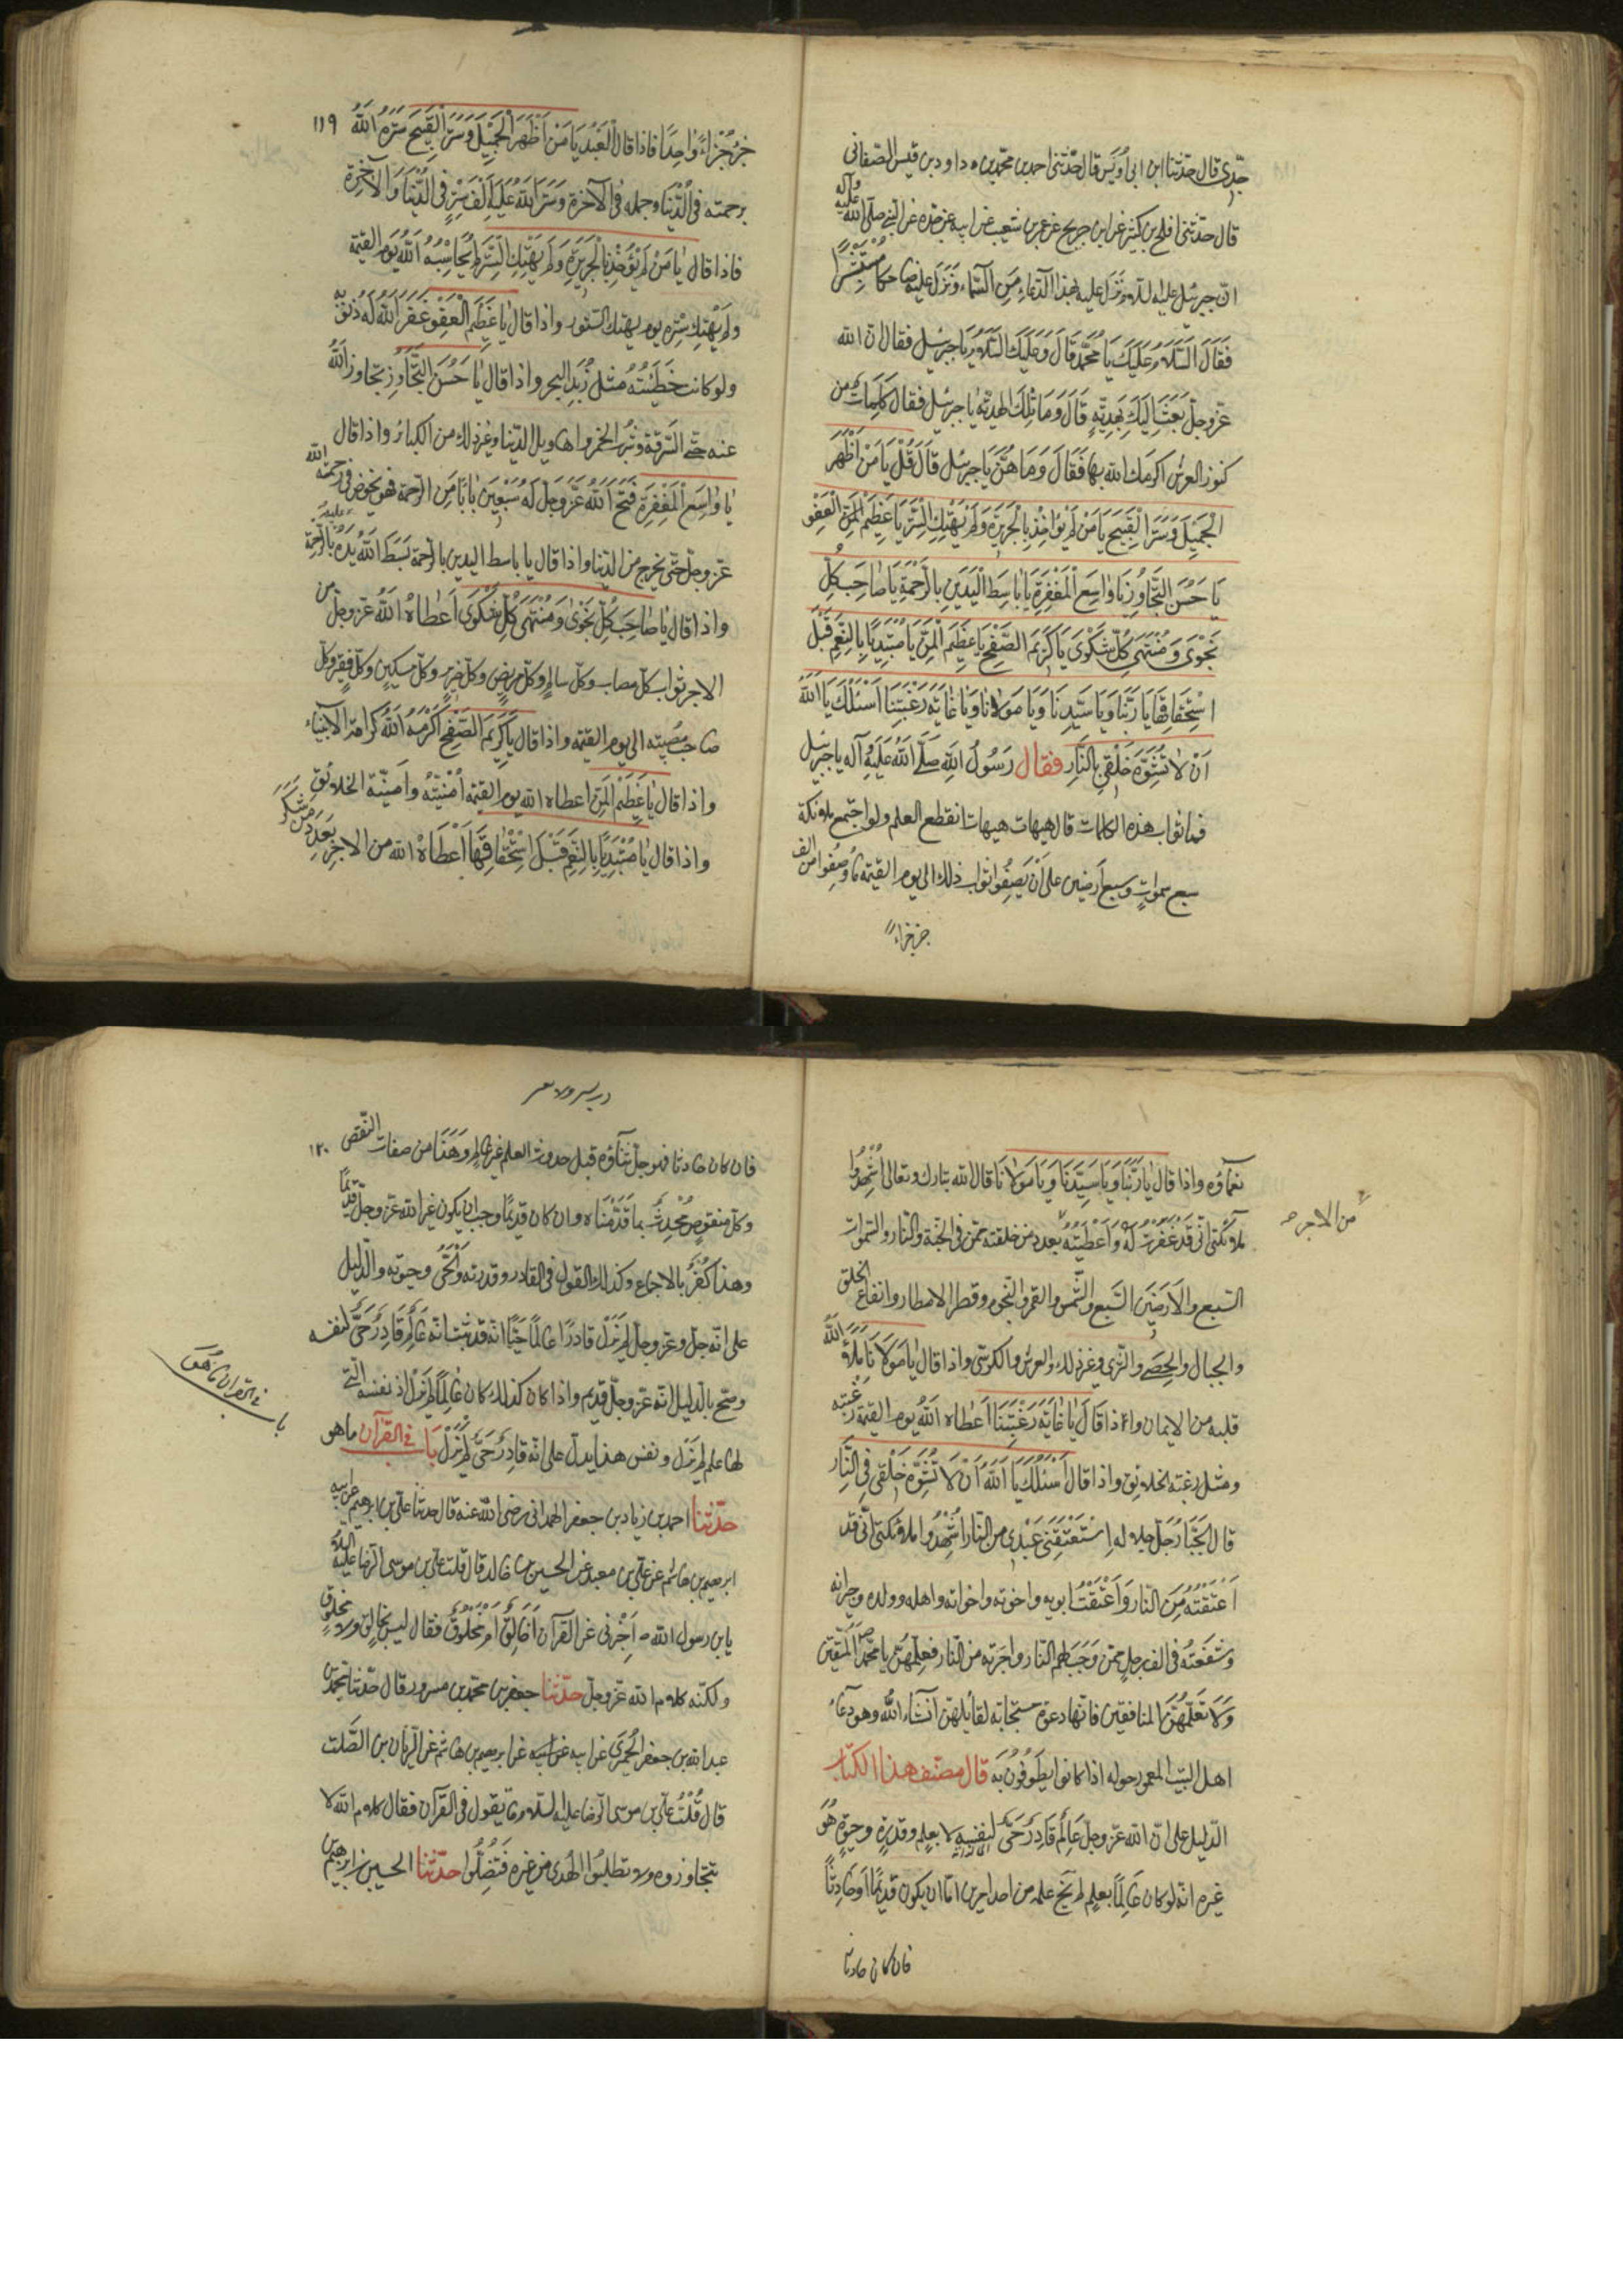 جدّي قال حدّثنا ابن ابى اُوَيس قال حدّثنى احمد بن محمّد بن داود بن قيس الصنعانى
قال حدّثنى افلح بن كثير عن ابن جريح عن عمرو بن شعيب عن ابيه عن جدّه عن النبى صلى الله عليه وآله
انّ جبرئيل عليه السلام نزل عليه بهذا الدّعاءِ مِنَ السّماءِ ونَزَلَ عليه ضاحكا مُسْتَبْشِرًا
فَقَالَ السَّلامُ عَلَيْكَ يَا مُحَمَّد قَالَ وَعَلَيْكَ السَّلامُ يَا جبرئيل فقال انّ الله
عزّ وجلّ بَعَثَ اِلَيْكَ بِهَدِيَّةٍ قَالَ وَمَا تِلْكَ الهديّة يا جبرئيل فقال كَلِمَاتٌ من
كنوز العرش اكرمك الله بها فَقَالَ وَمَا هُنَّ يَا جبرئيل قَالَ قُلْ يَا مَنْ اَظْهَرَ
الْجَمِيلَ وَسَتَرَ الْقَبِيحَ يَا مَنْ لَمْ يُؤاخِذْ بِالْجَرِيرَةِ وَلَمْ يَهْتِكِ السِّتْرَ يَا عَظِيمَ الْعَفْوِ
يَا حَسَنَ التَّجَاوُزِ يَا وَاسِعَ الْمَغْفِرَةِ يَا بَاسِطَ الْيَدَيْنِ بِالرَّحْمَةِ يَا صَاحِبَ كُلِّ
نَجْوَى وَمُنْتَهَى كُلِّ شَكْوَى يَا كَرِيمَ الصَّفْحِ يَا عَظِيمَ الْمَنِّ يَا مُبْتَدِيًا بِالنِّعَمِ قَبْلَ
اسْتِحْقَاقِهَا يَا رَبَّنَا وَيَا سَيِّدَنَا وَيَا مَوْلَانَا وَيَا غَايَةَ رَغْبَتِنَا اَسْئَلُكَ يَا اَللّٰهُ
اَنْ لَا تُشَوِّهَ خَلْقِي بِالنَّارِ فقال رَسُولُ اللهِ صَلَّى اللهُ عَلَيْهِ وآله يا جبرئيل
فما ثواب هذه الكلمات قال هيهات هيهات انقطع العلم ولو اجتمع ملائكة
سبع سموات وسبع ارضين على اَنْ يَصِفُوا ثواب ذلك الى يوم القيمة ما وصفوا من الف
جزء جزءً
١١٩
جزءٍ جُزْءًا وَاحِدًا فاذا قال العَبْدُ يَا مَنْ اَظْهَرَ الْجَمِيلَ وَسَتَرَ الْقَبِيحَ سَتَرَهُ اللهُ
برحمته فى الدُّنْيَا وجمله فى الآخرة وَسَتَرَ اللهُ عَلَيْهِ اَلْفَ سِتْرٍ فِي الدُّنْيَا وَالآخِرَة
فاذا قال يا مَنْ لَمْ يُؤَخِذْ بِالْجَرِيرَةِ وَلَمْ يَهْتِكِ السِّتْرَ لَمْ يُحَاسِبْهُ اللهُ يَوْم القيمة
ولم يَهْتِكْ سِتْرَهُ يوم يهتك الستور واذا قال يا عَظِيمَ الْعَفْوِ غَفَرَ اللهُ لَهُ ذُنُوبَهُ
ولو كانت خَطِيئَتُهُ مثل زَبَدِ البحر واذا قال يَا حَسَنَ التَّجَاوُزِ تجاوز اللهُ
عنه حتّى السّرقة وشُرْبِ الخمر واهاويل الدّنيا وغير ذلك من الكبائر واذا قال
يا وَاسِعَ الْمَغْفِرَةِ فَتَحَ اللهُ عَزَّ وَجَلَّ لَهُ سَبْعِينَ بَابًا مِنَ الرحمة فهو يخوض فى رحمة الله
عزّ وجلّ حتّى يخرج من الدّنيا واذا قال يا باسط اليدين بالرحمة بَسَطَ اللهُ يَدَهُ عليه بِالرَّحْمَة
واذا قال يا صَاحِبَ كُلِّ نَجْوَى وَمُنْتَهَى كُلِّ شَكْوَى اَعْطَاهُ اللهُ عزّ وجلّ من
الاجر ثواب كلّ مصاب وكلّ سالم وكلّ مريض وكلّ ضرير وكلّ مسكين وكلّ فقير وكلّ
صاحب مُصيبة الى يوم القيمة واذا قال يا كَرِيمَ الصَّفْحِ اَكْرَمَهُ اللهُ كرامة الانبياء
واذا قال يا عَظِيمَ الْمَنِّ اعطاه الله يوم القيمة اُمْنِيَّتَهُ واُمنيّة الخلائق
واذا قال يا مُبْتَدِيًا بِالنِّعَمِ قَبْلَ اسْتِحْقَاقِهَا اَعْطَاهُ الله من الاجر بِعَدَدِ مَنْ شَكَرَ
نعماؤه واذا قال يا رَبَّنَا وَيَا سَيِّدَنَا وَيَا مَوْلَانَا قال الله تبارك وتعالى اشْهَدُوا
ملائكتى انّى قَدْ غَفَرْتُ لَهُ وَاَعْطَيْتُهُ بعدد من خلقته ممّن فى الجنّة والنّار والسّموات
من الاجر
السّبع والاَرَضِينَ السَّبع والشَّمْس والقمر والنّجوم وقطر الامطار وانواع الخلق
والجبال والحصى والثّرى وغير ذلك والعرش والكرسى واذا قال يَا مَوْلَانَا مَلَأَ اللهُ
قلبه من الايمان واذا قَالَ يَا غَايَةَ رَغْبَتِنَا اَعْطَاهُ اللهُ يوم القيمة رغبته
ومثل رغبة الخلائق واذا قال اَسْئَلُكَ يَا اَللهُ اَنْ لَا تُشَوِّهَ خَلْقِي فِي النَّارِ
قال الجَبَّارُ جَلَّ جلاله اِسْتَعْتَقَنِي عَبْدِي من النّار اشْهَدُوا ملائكتى انّى قد
اَعْتَقْتُهُ مِنَ النّار وَاَعْتَقْتُ ابويه واخوته واخواته واهله وولده وجيرانه
وشَفَعْتُهُ فى الف رجل ممّن وَجَبَ لهم النّار واجرته من النّار فعلّمهنّ يا محمّد المتّقين
وَلَا تُعَلِّمْهُنَّ المنافقين فانّها دعوة مستجابة لقائلهنّ انشاء الله وهو دعاءُ
اهل البيت المعمور حوله اذا كانوا يَطُوفُونَ بِه قال مصنّف هذا الكتاب
الدّليل على انّ الله عزّ وجلّ عَالِمٌ قَادِرٌ حَىٌّ لنفسه لا بعلم وقدرة وحيوة هُوَ
غيره انّه لو كان عالمًا بعلم لم يخل علمه من احد امرين امّا ان يكون قديمًا اَو حَادِثًا
فان كان حادثا
١٢٠
فان كان حادثا فهو جلّ ثناؤه قبل حدوث العلم غير عالم وَهَذَا من صفات النّقص
وكلّ منقوص مُحْدَثٌ بما قَدَّمْنَاه وان كان قديمًا وجب ان يكون غير الله عزّ وجلّ قديمًا
وهذا كُفْرٌ بالاجماع وكذلك القول فى القادر وقدرته وَالْحَىِّ وحيوته والدّليل
على انّه جلّ وعزّ وجلّ لم يَزَلْ قادرًا عالمًا حَيًّا انّه قد ثبت انّه عَالِمٌ قَادِرٌ حَىٌّ لنفسه
وصحّ بالدّليل انّه عزّ وجلّ قديم واذا كان كذلك كان عَالِمًا لم يَزَلْ اذ نفسه الّتى
لها علم لم يَزَلْ ونفس هذا يدلّ على انّه قَادِرٌ حَىٌّ لَمْ يَزَلْ باب فى القرآن ماهو
باب فى القرآن مَا هُوَ
حدّثنا احمد بن زياد بن جعفر الهمدانى رضى الله عنه قال حدثنا علىّ بن ابرهيم عن ابيه
ابرهيم بن هاشم عن علىّ بن معبد عن الحسين بن خالد قال قلت لعلىّ بن موسى الرّضا عليه السلام
يا بن رسول الله ص اَخْبِرْنى عن القرآن اَخَالِقٌ اَمْ مَخْلُوقٌ فقال ليس بخالق ولا مخلوق
ولكنّه كلام الله عزّ وجلّ حدّثنا جعفر بن محمّد بن مسرور قال حدّثنا محمّد بن
عبد الله بن جعفر الحميرى عن ابيه عن ابرهيم بن هاشم عن الرّيّان بن الصَّلت
قال قُلْتُ لعلىّ بن موسى الرّضا عليه السلام ما يقول فى القرآن فقال كلام الله لا
تتجاوزوه ولا تطلبُوا الهُدى من غيره فَتَضِلُّوا حدّثنا الحسين بن ابرهيم